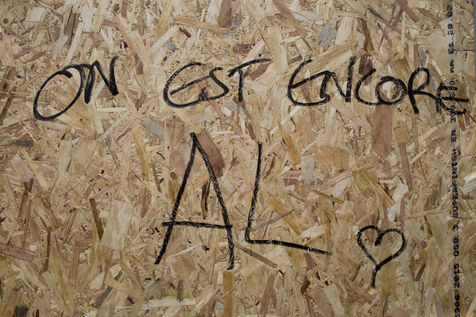 ON EST ENCORE
AL